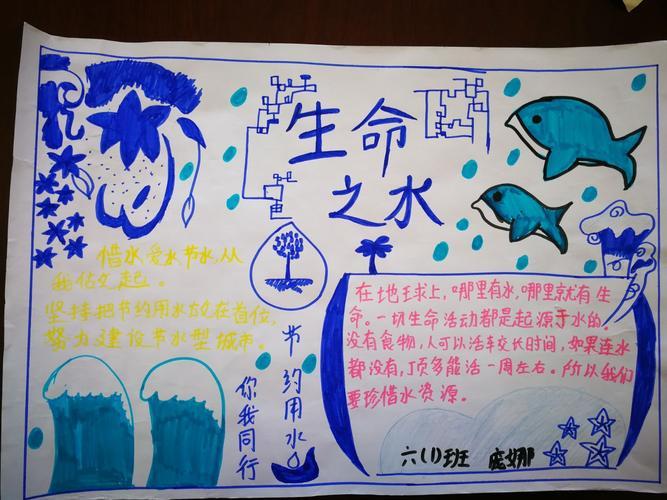 生命
之水
惜水爱水节水,从
我做起。
坚持把节约用水放在首位,
努力建设节水型城市。
节约用水
你我同行
在地球上,哪里有水,哪里就有生
命。一切生命活动都是起源于水的。
没有食物,人可以活车交长时间,如果连水
都没有,顶多能活一周左右。所以我们
要珍惜水资源。
六(1)班 庞娜